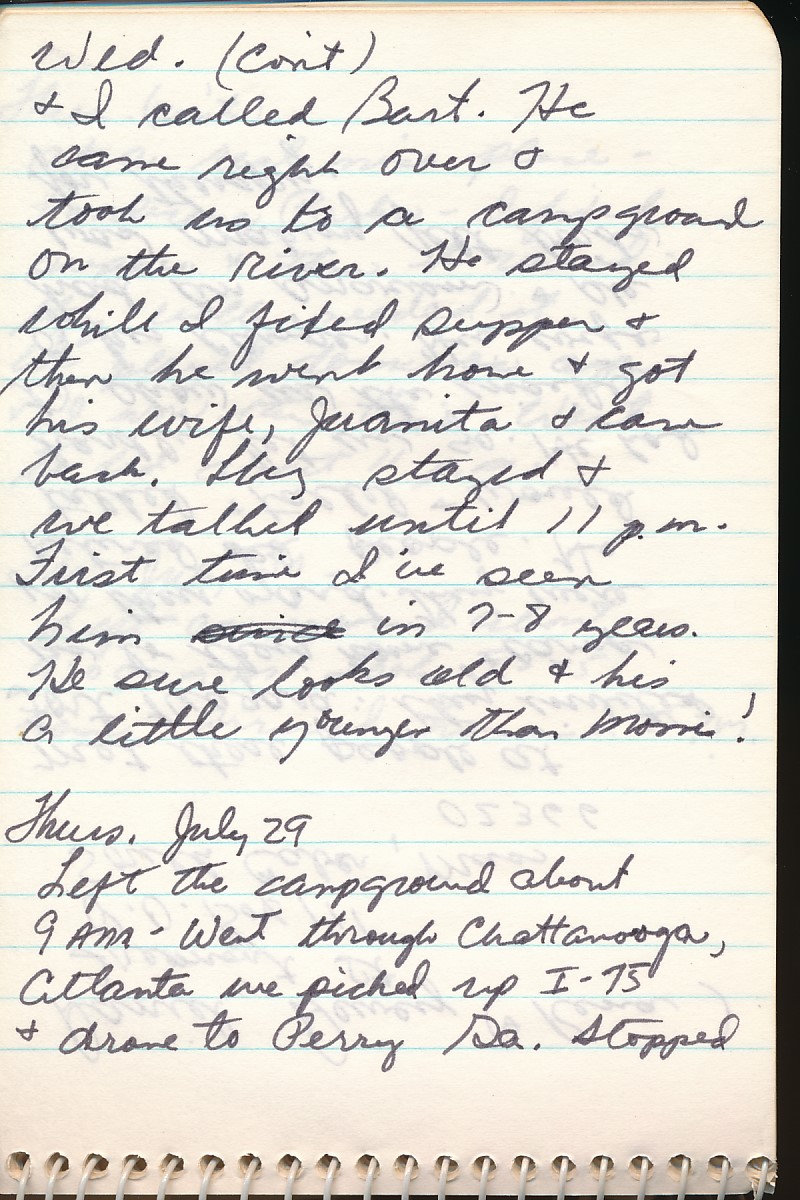 Wed. (Con't)
& I called Bart. He
came right over &
took us to a campground
on the river. He stayed
while I fixed supper &
then he went home & got
his wife, Juanita & came
back. They stayed &
we talked until 11 p.m.
First time I've seen
him since in 7-8 years.
He sure looks old & his
a little younger than Morris!
Thurs. July 29
Left the campground about
9 AM - Went through Chattanooga,
Atlanta we picked up I-75
& drove to Perry Ga. Stopped